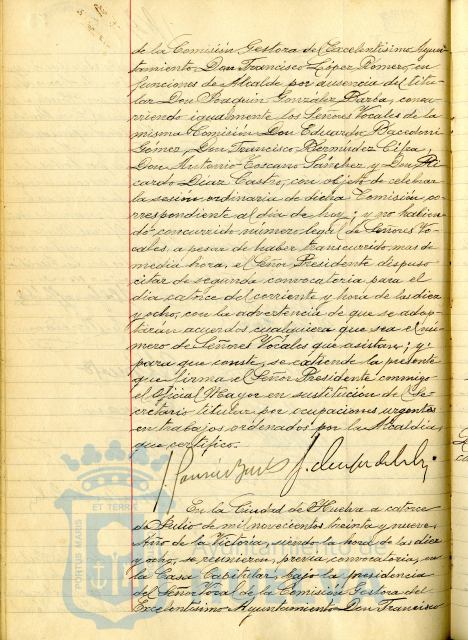 de la Comisión Gestora del Excelentísimo Ayun-
tamiento Don Francisco López Romero, en
funciones de Alcalde por ausencia del titu-
lar Don Joaquín González Barba, concu-
rriendo igualmente los Señores Vocales de la
misma Comisión Don Eduardo
Gómez, Don Francisco Bermúdez
Don Antonio Toscano Sánchez y Don Ri-
cardo Díaz Castro, con objeto de celebrar
la sesión ordinaria de dicha Comisión co-
rrespondiente al día de hoy; y no habien-
do concurrido número legal de Señores Vo-
cales a pesar de haber transcurrido mas de
media hora, el Señor Presidente dispuso
citar de segunda convocatoria para el
día catorce del corriente y hora de las diez
y ocho, con la advertencia de que se adop-
tarán acuerdos cualquiera que sea el nú-
mero de Señores Vocales que asistan; y
para que conste, se extiende la presente
que firma el Señor Presidente conmigo
el Oficial Mayor en sustitución del Se-
cretario titular por ocupaciones urgentes
en trabajos ordenados por la Alcaldía,
que certifico.
En la Ciudad de Huelva a catorce
de Julio de mil novecientos treinta y nueve,
Año de la Victoria, siendo la hora de las diez
y ocho, se reunieron, previa convocatoria, en
la Casa Capitular, bajo la presidencia
del Señor Vocal de la Comisión Gestora del
Excelentísimo Ayuntamiento Don Francisco
PORTUS MARIS
ET TERRE
Ayuntamiento de